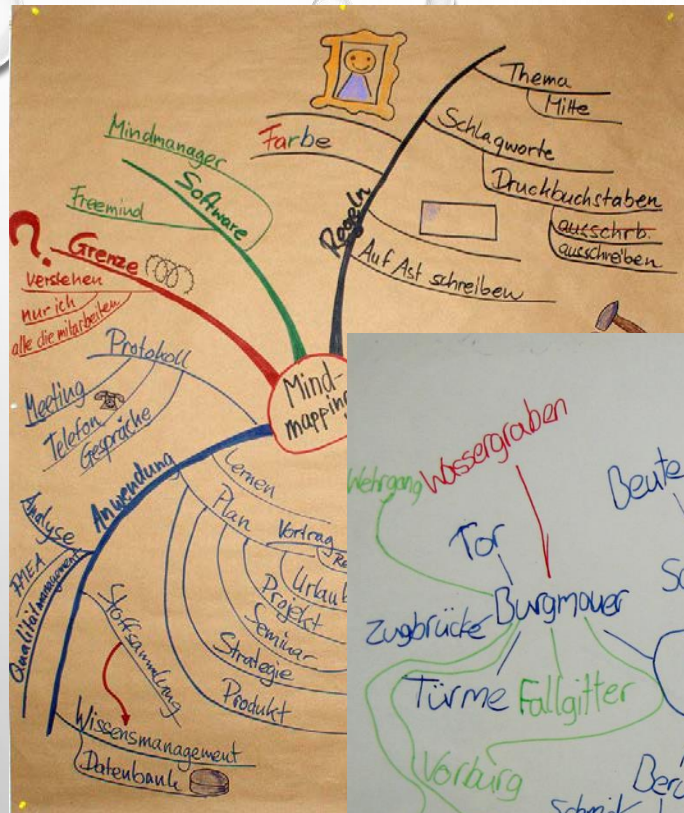 Thema
Mitte
Schlagworte
Druckbuchstaben
ausschrb.
ausschreiben
Farbe
Regeln
Auf Ast schreiben
Mindmanager
Software
Freemind
?
Grenze
verstehen
nur ich
alle die mitarbeiten
Mind-
mapping
Protokoll
Meeting
Telefon
Gespräche
Anwendung
Lernen
Plan
Vortrag
Urlaub
Projekt
Seminar
Strategie
Produkt
Analyse
FMEA
Qualitätmanagement
Stoffsammlung
Wissensmanagement
Datenbank
Wehrgang
Wassergraben
Beute
Tor
Zugbrücke
Burgmauer
Türme
Fallgitter
Vorburg